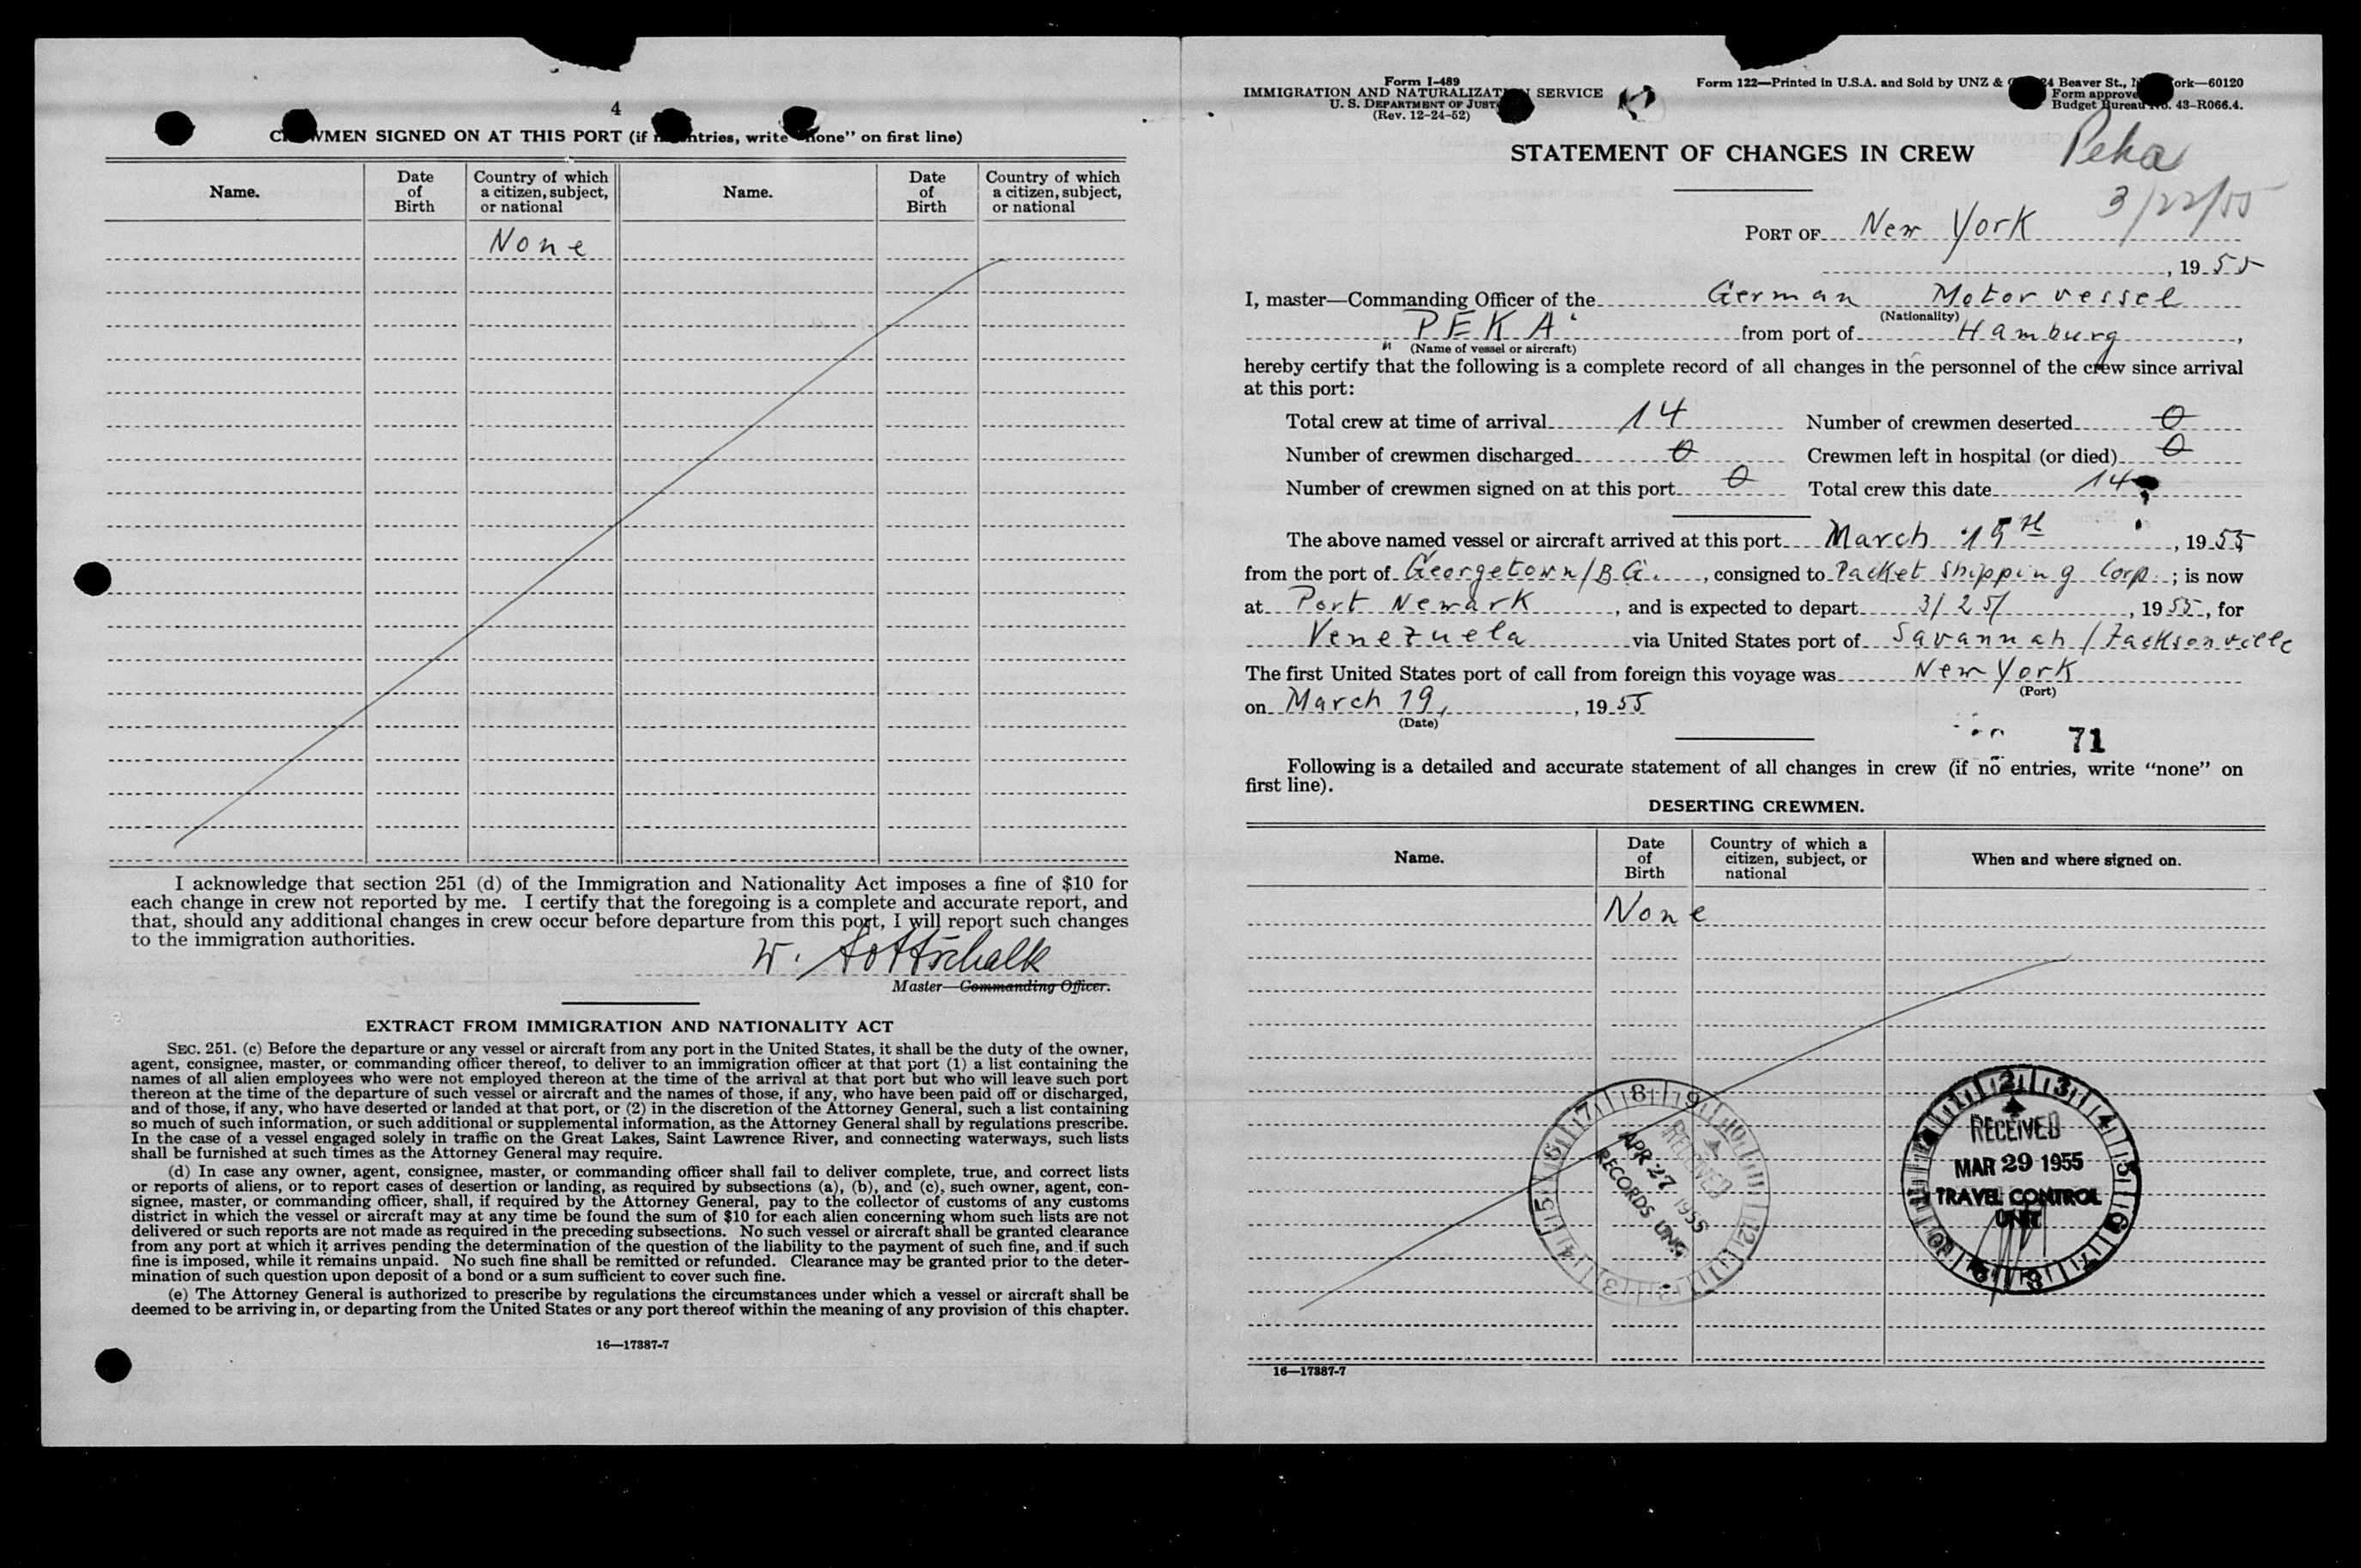 4
CREWMEN SIGNED ON AT THIS PORT (if no entries, write "none" on first line)
Name.
Date of Birth
Country of which a citizen, subject, or national
Name.
Date of Birth
Country of which a citizen, subject, or national
None
I acknowledge that section 251 (d) of the Immigration and Nationality Act imposes a fine of $10 for
each change in crew not reported by me. I certify that the foregoing is a complete and accurate report, and
that, should any additional changes in crew occur before departure from this port, I will report such changes
to the immigration authorities.
W. Gottschalk
Master—Commanding Officer.
EXTRACT FROM IMMIGRATION AND NATIONALITY ACT
SEC. 251. (c) Before the departure or any vessel or aircraft from any port in the United States, it shall be the duty of the owner,
agent, consignee, master, or commanding officer thereof, to deliver to an immigration officer at that port (1) a list containing the
names of all alien employees who were not employed thereon at the time of the arrival at that port but who will leave such port
thereon at the time of the departure of such vessel or aircraft and the names of those, if any, who have been paid off or discharged,
and of those, if any, who have deserted or landed at that port, or (2) in the discretion of the Attorney General, such a list containing
so much of such information, or such additional or supplemental information, as the Attorney General shall by regulations prescribe.
In the case of a vessel engaged solely in traffic on the Great Lakes, Saint Lawrence River, and connecting waterways, such lists
shall be furnished at such times as the Attorney General may require.
(d) In case any owner, agent, consignee, master, or commanding officer shall fail to deliver complete, true, and correct lists
or reports of aliens, or to report cases of desertion or landing, as required by subsections (a), (b), and (c), such owner, agent, con-
signee, master, or commanding officer, shall, if required by the Attorney General, pay to the collector of customs of any customs
district in which the vessel or aircraft may at any time be found the sum of $10 for each alien concerning whom such lists are not
delivered or such reports are not made as required in the preceding subsections. No such vessel or aircraft shall be granted clearance
from any port at which it arrives pending the determination of the question of the liability to the payment of such fine, and if such
fine is imposed, while it remains unpaid. No such fine shall be remitted or refunded. Clearance may be granted prior to the deter-
mination of such question upon deposit of a bond or a sum sufficient to cover such fine.
(e) The Attorney General is authorized to prescribe by regulations the circumstances under which a vessel or aircraft shall be
deemed to be arriving in, or departing from the United States or any port thereof within the meaning of any provision of this chapter.
16—17387-7
Form I-489
IMMIGRATION AND NATURALIZATION SERVICE
U. S. DEPARTMENT OF JUSTICE
(Rev. 12-24-52)
Form 122—Printed in U.S.A. and Sold by UNZ & 24 Beaver St., New York—60120
Form approved
Budget Bureau No. 43-R066.4.
Peka
3/22/55
STATEMENT OF CHANGES IN CREW
PORT OF New York
, 19 55
I, master—Commanding Officer of the German Motorvessel
(Nationality)
"PEKA" from port of Hamburg,
(Name of vessel or aircraft)
hereby certify that the following is a complete record of all changes in the personnel of the crew since arrival
at this port:
Total crew at time of arrival 14 Number of crewmen deserted 0
Number of crewmen discharged 0 Crewmen left in hospital (or died) 0
Number of crewmen signed on at this port 0 Total crew this date 14
The above named vessel or aircraft arrived at this port March 19th, 19 55
from the port of Georgetown/B.G., consigned to Packet Shipping Corp.; is now
at Port Newark, and is expected to depart 3/25/, 19 55, for
Venezuela via United States port of Savannah/Jacksonville
The first United States port of call from foreign this voyage was New York
(Port)
on March 19, , 19 55
(Date)
71
Following is a detailed and accurate statement of all changes in crew (if no entries, write "none" on
first line).
DESERTING CREWMEN.
Name.
Date of Birth
Country of which a citizen, subject, or national
When and where signed on.
None
RECEIVED
APR 27 1955
RECORDS UNIT
RECEIVED
MAR 29 1955
TRAVEL CONTROL
UNIT
16—17387-7